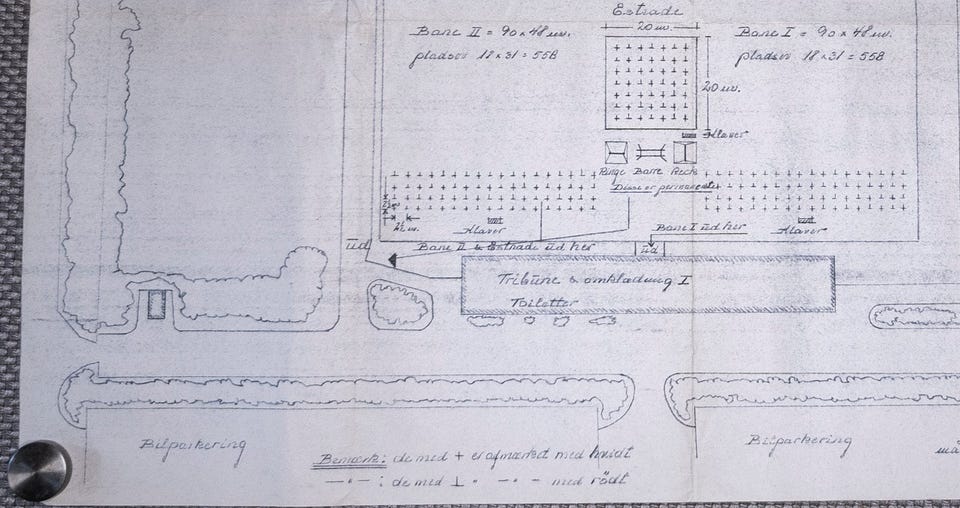 Estrade
20 m.
Bane II = 90 x 48 m.
pladser 18 x 31 = 558
Bane I = 90 x 48 m.
pladser 18 x 31 = 558
20 m.
Klaver
Ringe Barre Reck
Disse er permanente
2½ m.
2½ m.
Klaver
Klaver
Bane I ud her
ud
Bane II & Estrade ud her
ud
Tribune & omklædning I
Toiletter
Bilparkering
Bilparkering
Bemærk: de med + er afmærket med hvidt
— " — : de med ⊥ " — " — med rödt